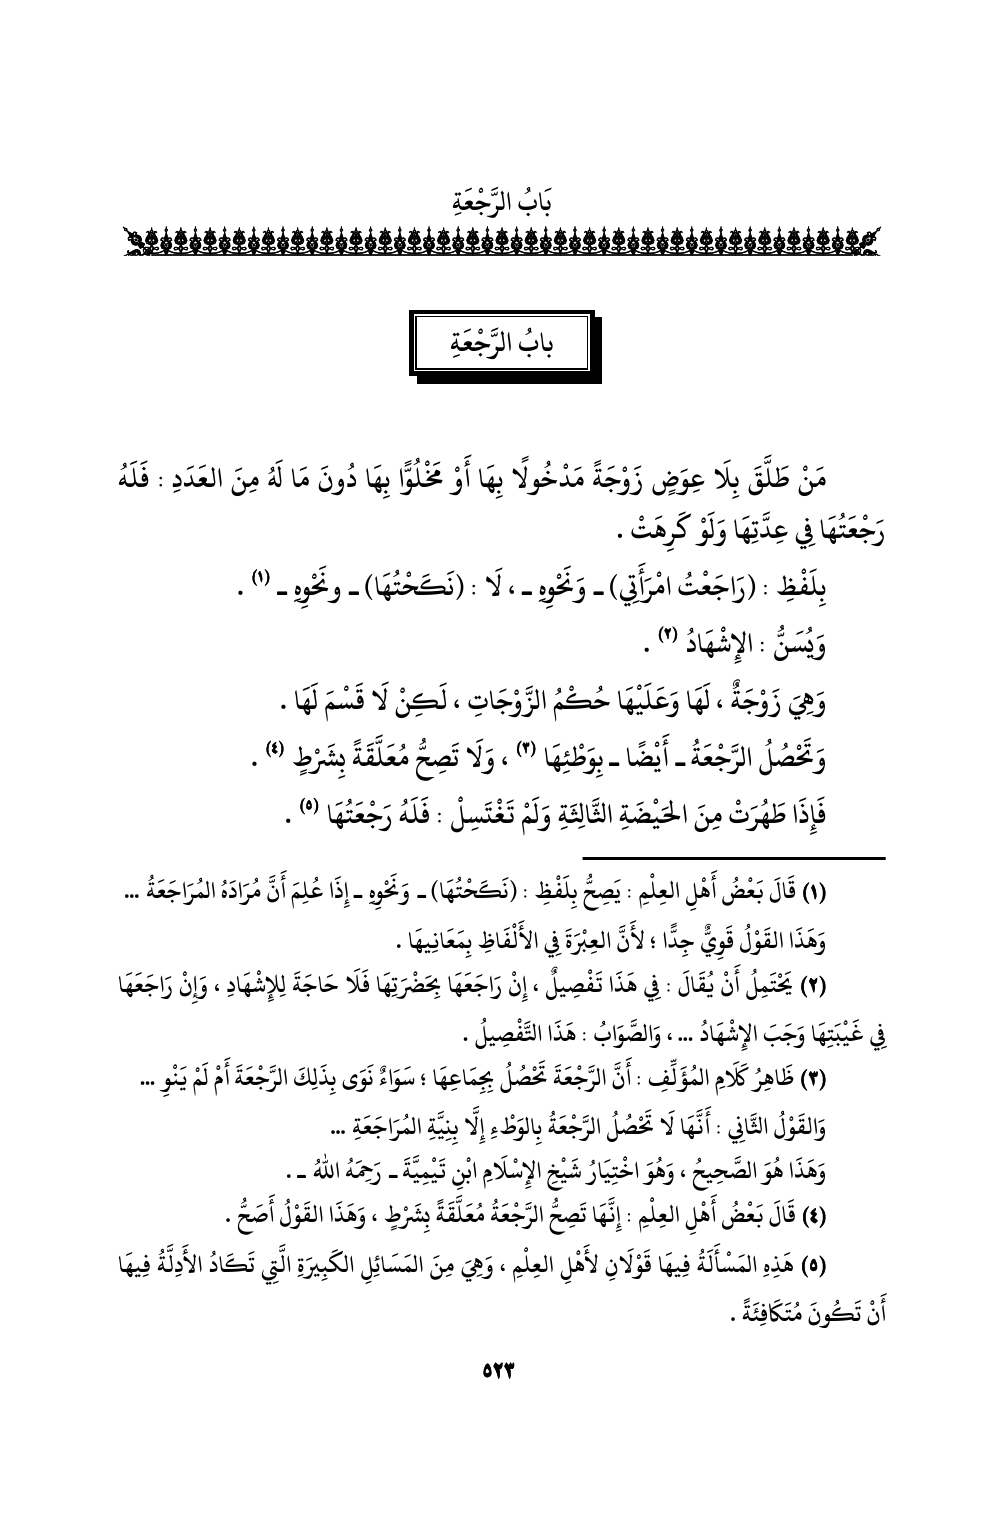 بَابُ الرَّجْعَةِ
بابُ الرَّجْعَةِ
مَنْ طَلَّقَ بِلَا عِوَضٍ زَوْجَةً مَدْخُولًا بِهَا أَوْ مَخْلُوًّا بِهَا دُونَ مَا لَهُ مِنَ العَدَدِ : فَلَهُ
رَجْعَتُهَا فِي عِدَّتِهَا وَلَوْ كَرِهَتْ .
بِلَفْظِ : (رَاجَعْتُ امْرَأَتِي) ـ وَنَحْوِهِ ـ ، لَا : (نَكَحْتُهَا) ـ ونَحْوِهِ ـ (١) .
وَيُسَنُّ : الإِشْهَادُ (٢) .
وَهِيَ زَوْجَةٌ ، لَهَا وَعَلَيْهَا حُكْمُ الزَّوْجَاتِ ، لَكِنْ لَا قَسْمَ لَهَا .
وَتَحْصُلُ الرَّجْعَةُ ـ أَيْضًا ـ بِوَطْئِهَا (٣) ، وَلَا تَصِحُّ مُعَلَّقَةً بِشَرْطٍ (٤) .
فَإِذَا طَهُرَتْ مِنَ الحَيْضَةِ الثَّالِثَةِ وَلَمْ تَغْتَسِلْ : فَلَهُ رَجْعَتُهَا (٥) .
(١) قَالَ بَعْضُ أَهْلِ العِلْمِ : يَصِحُّ بِلَفْظِ : (نَكَحْتُهَا) ـ وَنَحْوِهِ ـ إِذَا عُلِمَ أَنَّ مُرَادَهُ المُرَاجَعَةُ ...
وَهَذَا القَوْلُ قَوِيٌّ جِدًّا ؛ لأَنَّ العِبْرَةَ فِي الأَلْفَاظِ بِمَعَانِيهَا .
(٢) يَحْتَمِلُ أَنْ يُقَالَ : فِي هَذَا تَفْصِيلٌ ، إِنْ رَاجَعَهَا بِحَضْرَتِهَا فَلَا حَاجَةَ لِلإِشْهَادِ ، وَإِنْ رَاجَعَهَا
فِي غَيْبَتِهَا وَجَبَ الإِشْهَادُ ... ، وَالصَّوَابُ : هَذَا التَّفْصِيلُ .
(٣) ظَاهِرُ كَلَامِ المُؤَلِّفِ : أَنَّ الرَّجْعَةَ تَحْصُلُ بِجِمَاعِهَا ؛ سَوَاءٌ نَوَى بِذَلِكَ الرَّجْعَةَ أَمْ لَمْ يَنْوِ ...
وَالقَوْلُ الثَّانِي : أَنَّهَا لَا تَحْصُلُ الرَّجْعَةُ بِالوَطْءِ إِلَّا بِنِيَّةِ المُرَاجَعَةِ ...
وَهَذَا هُوَ الصَّحِيحُ ، وَهُوَ اخْتِيَارُ شَيْخِ الإِسْلَامِ ابْنِ تَيْمِيَّةَ ـ رَحِمَهُ اللهُ ـ .
(٤) قَالَ بَعْضُ أَهْلِ العِلْمِ : إِنَّهَا تَصِحُّ الرَّجْعَةُ مُعَلَّقَةً بِشَرْطٍ ، وَهَذَا القَوْلُ أَصَحُّ .
(٥) هَذِهِ المَسْأَلَةُ فِيهَا قَوْلَانِ لأَهْلِ العِلْمِ ، وَهِيَ مِنَ المَسَائِلِ الكَبِيرَةِ الَّتِي تَكَادُ الأَدِلَّةُ فِيهَا
أَنْ تَكُونَ مُتَكَافِئَةً .
٥٢٣